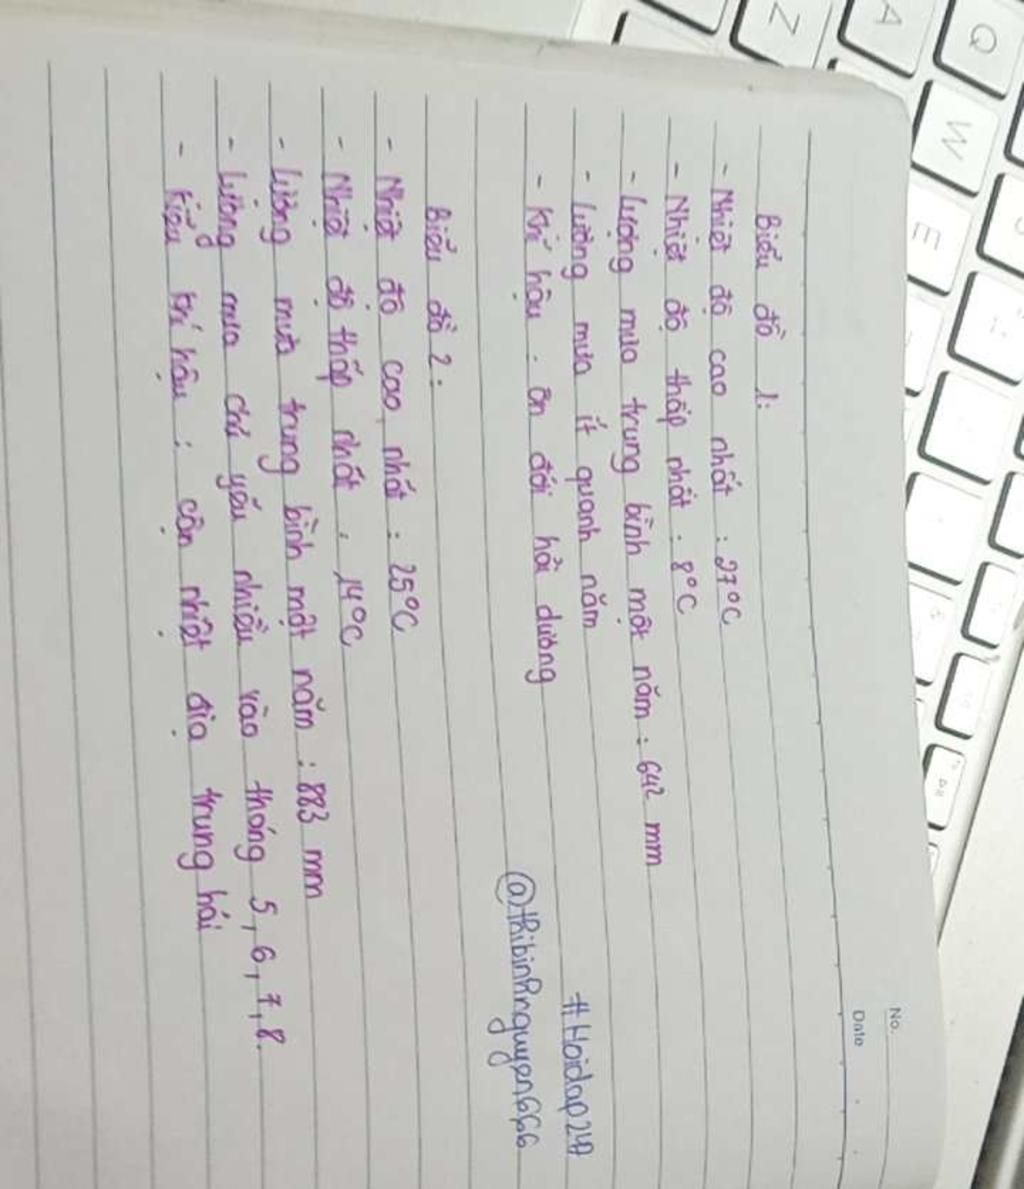 No.
Date
Biểu đồ 1:
- Nhiệt độ cao nhất : 27°C
- Nhiệt độ thấp nhất : 8°C
- Lượng mưa trung bình một năm : 642 mm
- Lượng mưa ít quanh năm
- Khí hậu : ôn đới hải dương
#Hoidap247
@thibinhnguyen666
Biểu đồ 2:
- Nhiệt độ cao nhất : 25°C
- Nhiệt độ thấp nhất : 14°C
- Lượng mưa trung bình một năm : 883 mm
- Lượng mưa chủ yếu nhiều vào tháng 5, 6, 7, 8.
- Kiểu khí hậu : cận nhiệt địa trung hải
Q
W
E
A
Z